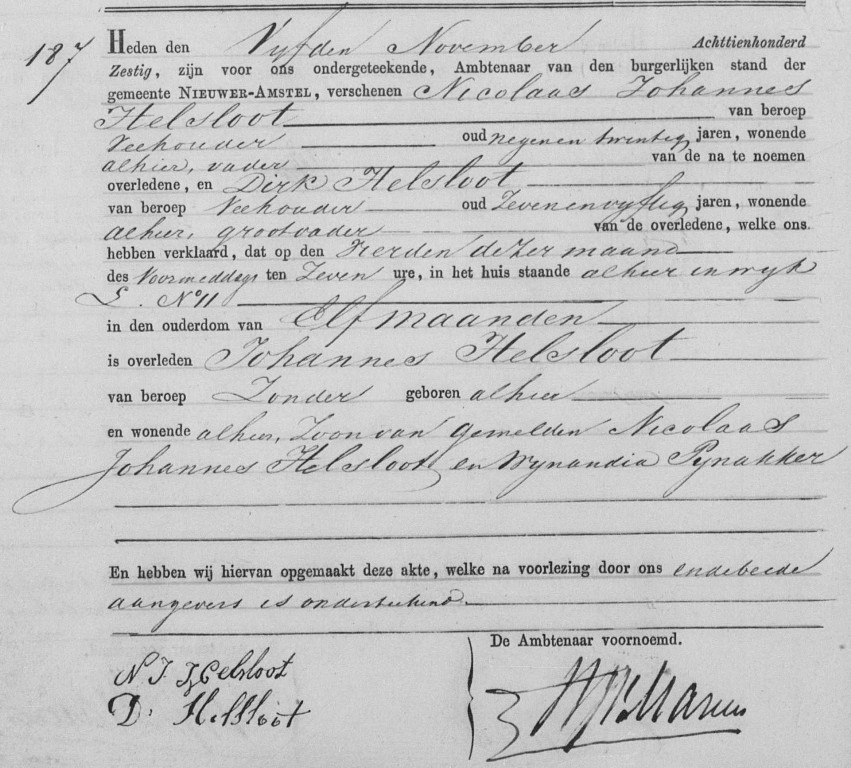 187
Heden den Vyfden November Achttienhonderd
Zestig, zijn voor ons ondergeteekende, Ambtenaar van den burgerlijken stand der
gemeente NIEUWER-AMSTEL, verschenen Nicolaas Johannes
Helsloot van beroep
Veehouder oud negenen twintig jaren, wonende
alhier, vader van de na te noemen
overledene, en Dirk Helsloot
van beroep Veehouder oud Zevenenvyftig jaren, wonende
alhier, grootvader van de overledene, welke ons
hebben verklaard, dat op den Vierden dezer maand
des Voormiddags ten Zeven ure, in het huis staande alhier in wyk
L. No 11
in den ouderdom van Elf maanden
is overleden Johannes Helsloot
van beroep Zonder geboren alhier
en wonende alhier, Zoon van gemelden Nicolaas
Johannes Helsloot en Wynandia Pynakker
En hebben wij hiervan opgemaakt deze akte, welke na voorlezing door ons en de beide
aangevers is onderteekend.
De Ambtenaar voornoemd.
N J Helsloot
D. Helsloot